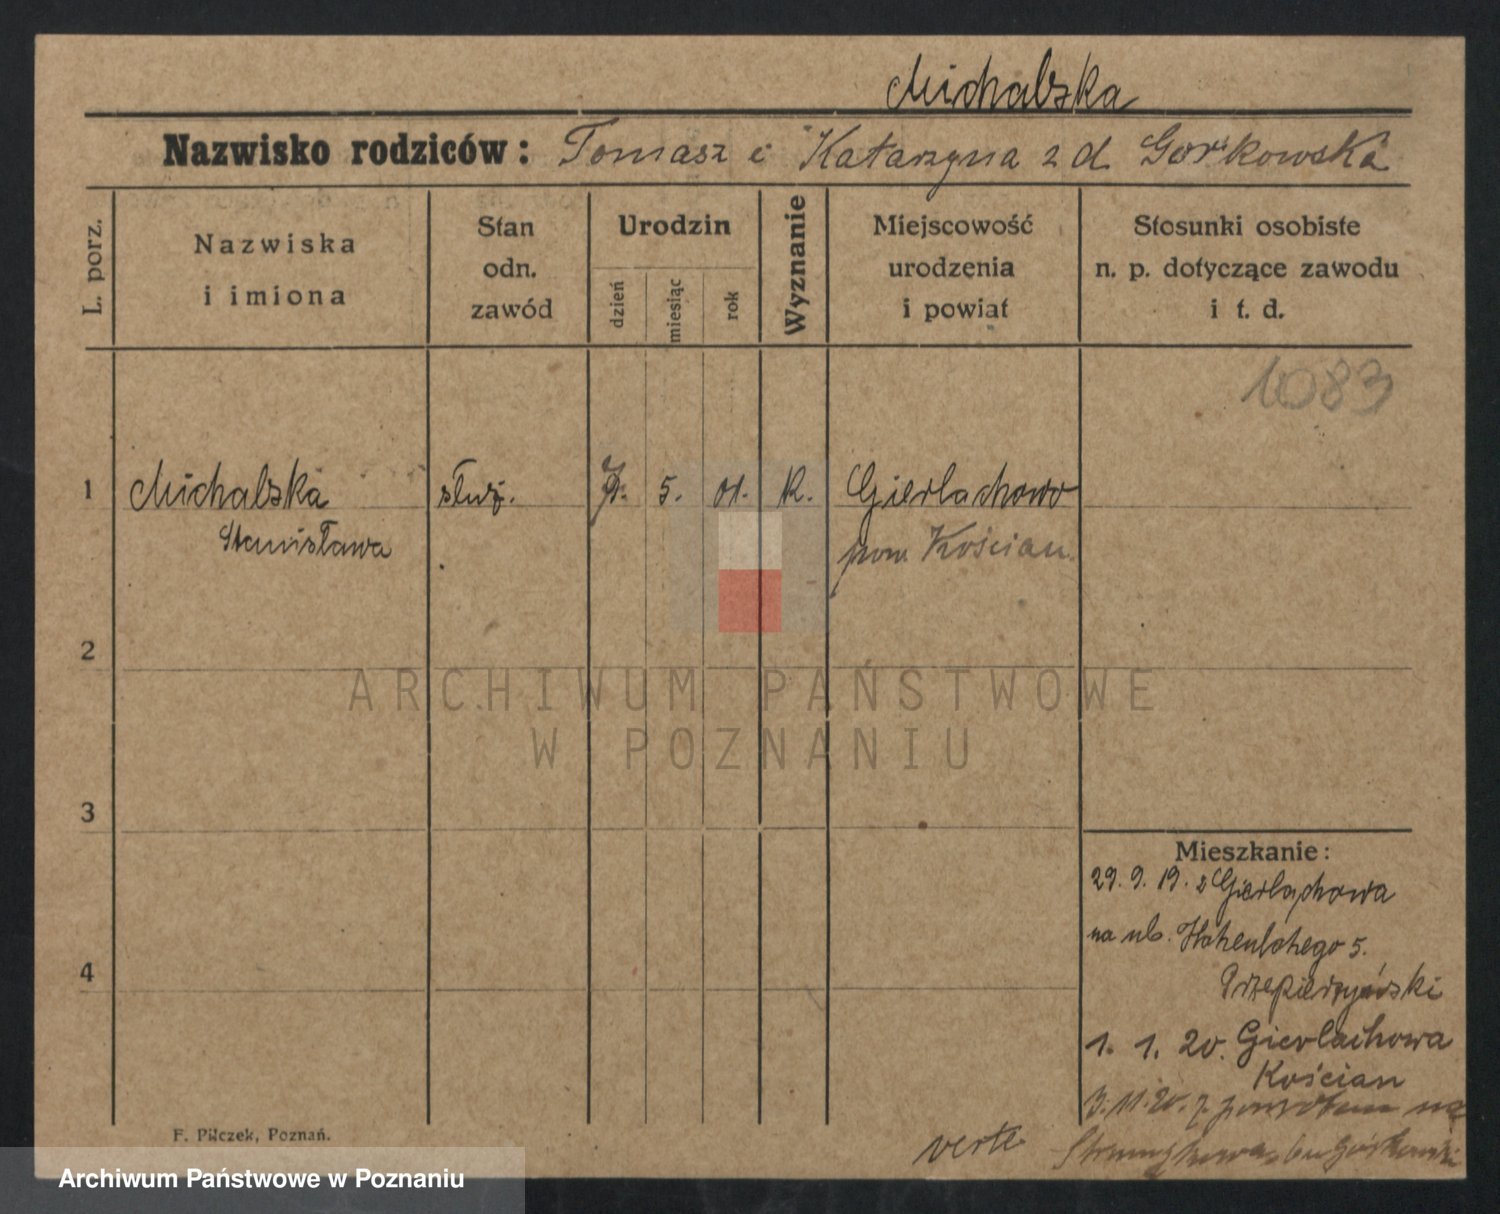 Michalska
Nazwisko rodziców: Tomasz i Katarzyna z d. Gorkowska
L. porz.
Nazwiska
i imiona
Stan
odn.
zawód
Urodzin
dzień
miesiąc
rok
Wyznanie
Miejscowość
urodzenia
i powiat
Stosunki osobiste
n. p. dotyczące zawodu
i t. d.
1083
1 Michalska służ. 5. 01. K. Gierlachowo
Stanisława pow. Kościan.
2
ARCHIWUM PAŃSTWOWE
W POZNANIU
3
Mieszkanie:
29. 9. 19. z Gierlachowa
na ul. 5.
4
1. 1. 20. Gierlachowa
Kościan
11. 20. z powrotem na
verte
F. Pilczek, Poznań.
Archiwum Państwowe w Poznaniu